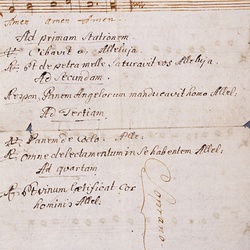 Amen amen Amen.
Ad primam Stationem
℣. Cibavit ... Alleluja
℟. Et de petra melle Saturavit eos Alleluja.
Ad Secundam.
Respon. Panem Angelorum manducavit homo Allel.
Ad Tertiam
℣. Panem de Cœlo Alle:
℟. omne delectamentum in se habentem Allel.
Ad quartam
℟. Et vinum Lætificat Cor
hominis Allel.
Soprano